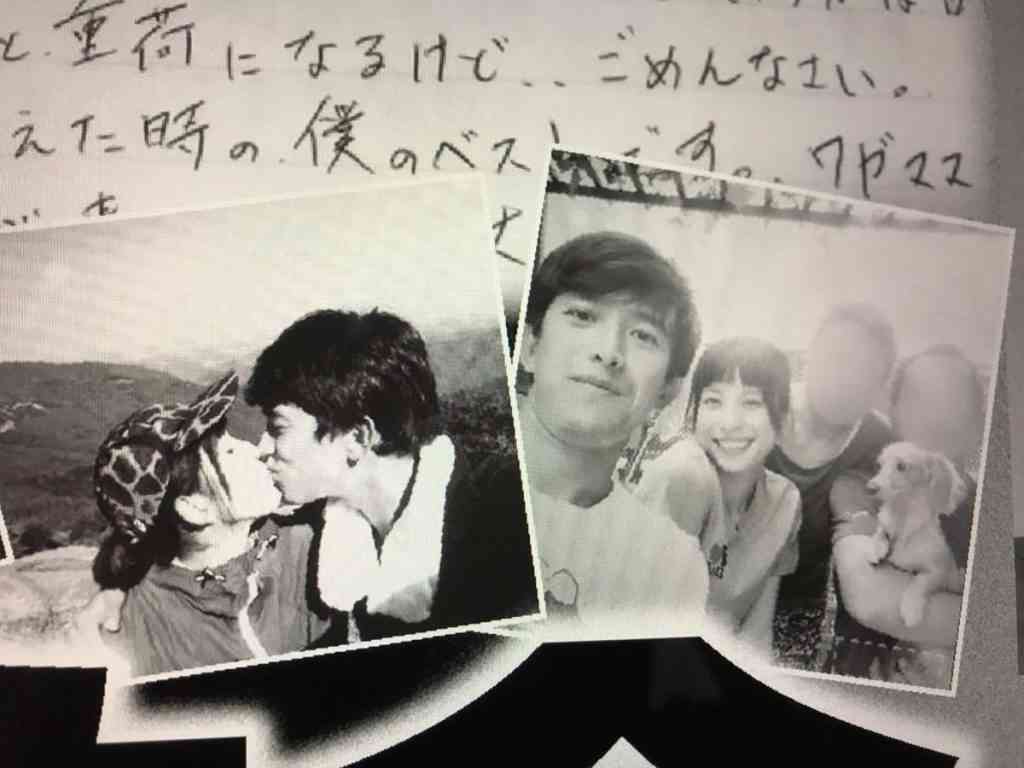 と重荷になるけど.. ごめんなさい。
えた時の僕のベストです。ワガママ